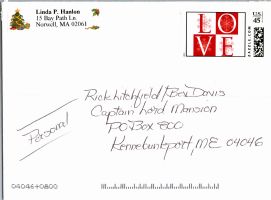 Linda P. Hanlon
15 Bay Path Ln.
Norwell, MA 02061
LOVE
US
45
Rick Litchfield/Bev Davis
Captain Lord Mansion
PO Box 800
Kennebunkport, ME 04046
Personal
04046+0800